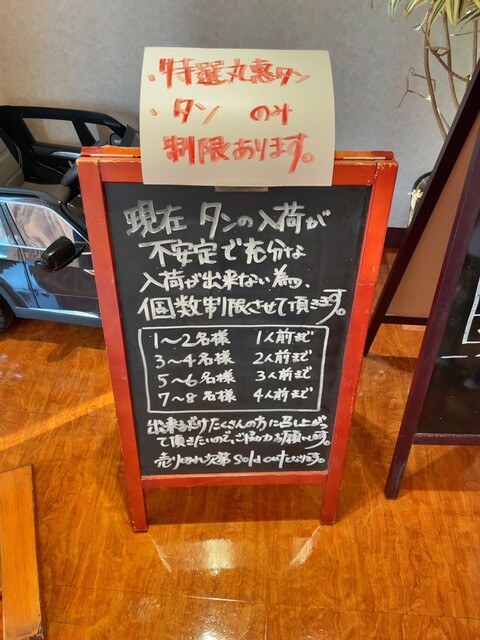 ・特選丸惠タン
・タン のみ
制限あります。
現在 タンの入荷が
不安定で充分な
入荷が出来ない為、
個数制限させて頂きます。
1〜2名様 1人前まで
3〜4名様 2人前まで
5〜6名様 3人前まで
7〜8名様 4人前まで
出来るだけたくさんの方に召し上がっ
て頂きたいので、ご協力お願いします。
売り切れ次第 Sold outとなります。